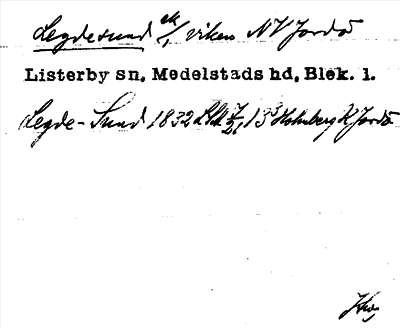 Legdesund ek/, viken NV Jordö
Listerby sn. Medelstads hd, Blek. l.
Legde-Sund 1832 Holmberg K Jordö